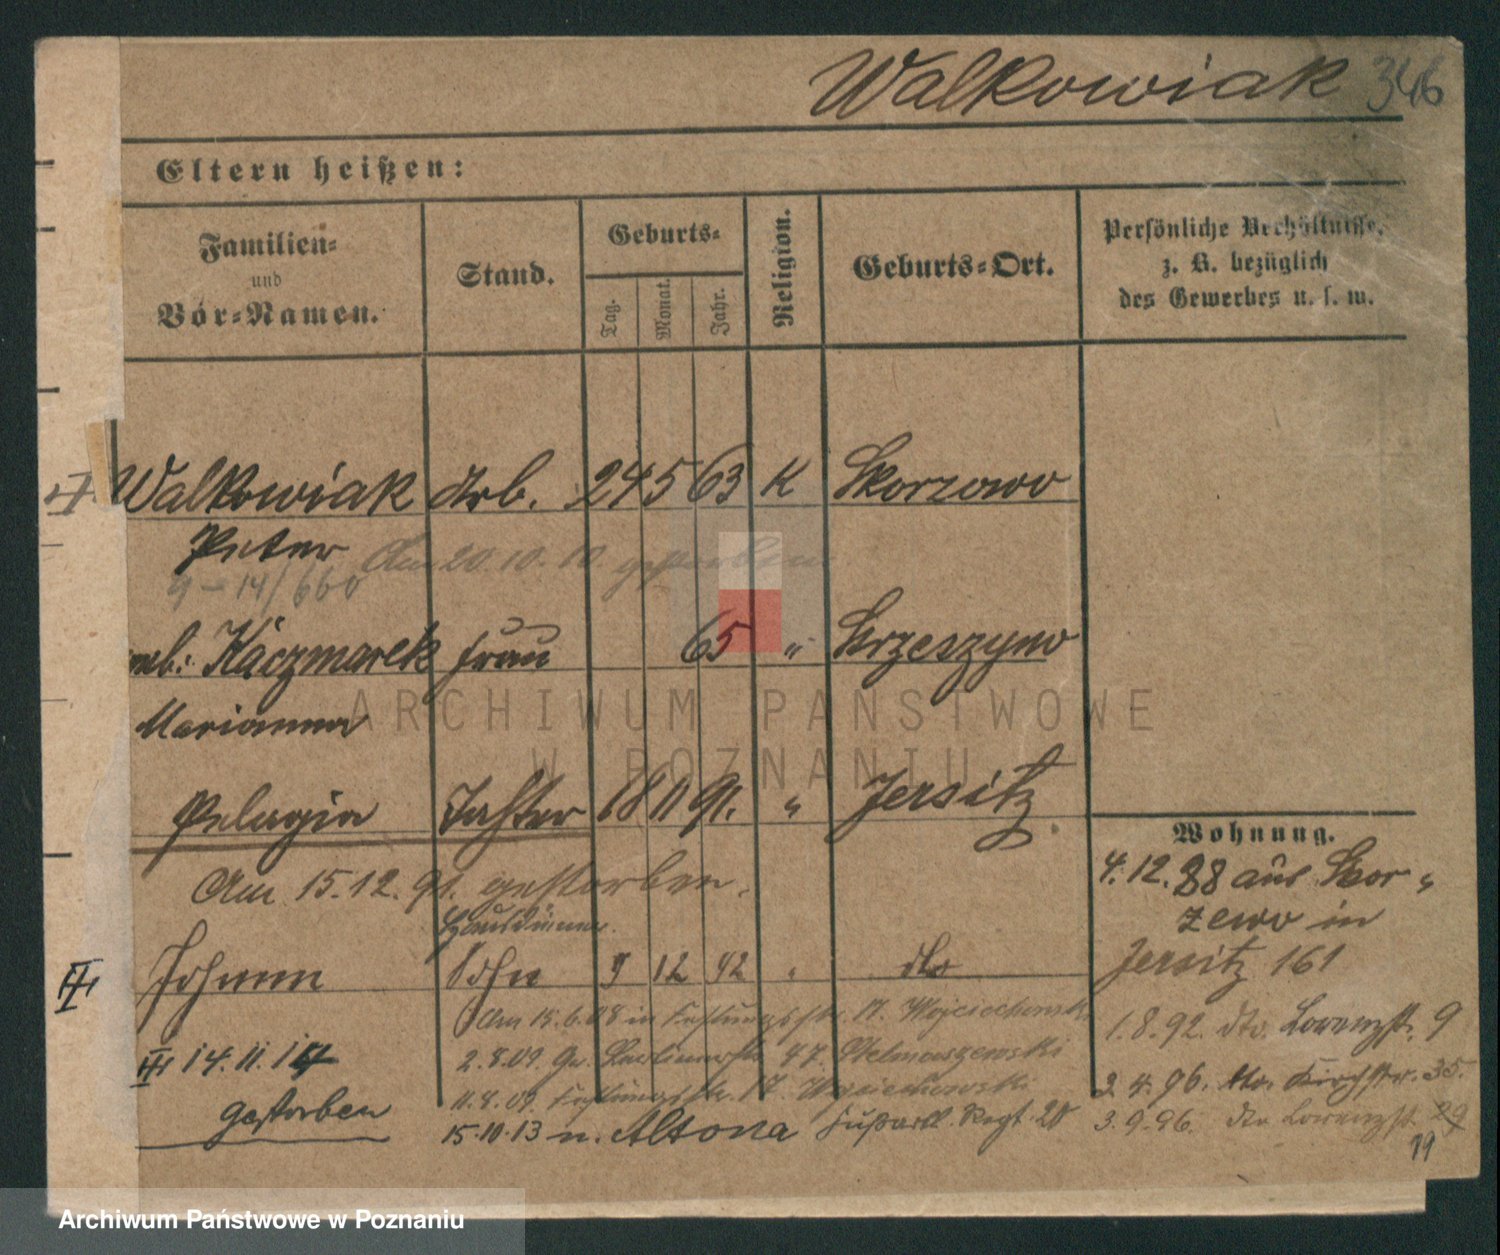 Walkowiak 346
Eltern heißen:
Familien- und Vor-Namen.
Stand.
Geburts-
Tag. Monat. Jahr.
Religion.
Geburts-Ort.
Persönliche Verhältnisse,
z. B. bezüglich
des Gewerbes u. s. w.
I Walkowiak Arb. 24 5 63 K Skorzewo
Peter Am 20.10.10 gestorben
9-14/660
geb: Kaczmarek Frau 65 " Krzeszyno
Marianna
Pelagia Tochter 18 11 91. " Jersitz
Am 15.12.91. gestorben.
Hausdiener.
II Johann Sohn 9 12 92 " dto
Am 15.6.08 in Festungsstr. 17. Wojciechowski
III 14.11.14
gestorben
2.8.09. 47. Stelmaszewski
11.8.09. Festungsstr. 17. Wojciechowski
15.10.13 n. Altona Fußartl. Regt. 20
Wohnung.
4.12.88 aus Skor-
zewo in
Jersitz 161
1.8.92. dto. Lorenzstr. 9
2.4.96. dto. Kirchstr. 35.
3.9.96. dto Lorenzstr. 29
19
ARCHIWUM PAŃSTWOWE
W POZNANIU
Archiwum Państwowe w Poznaniu